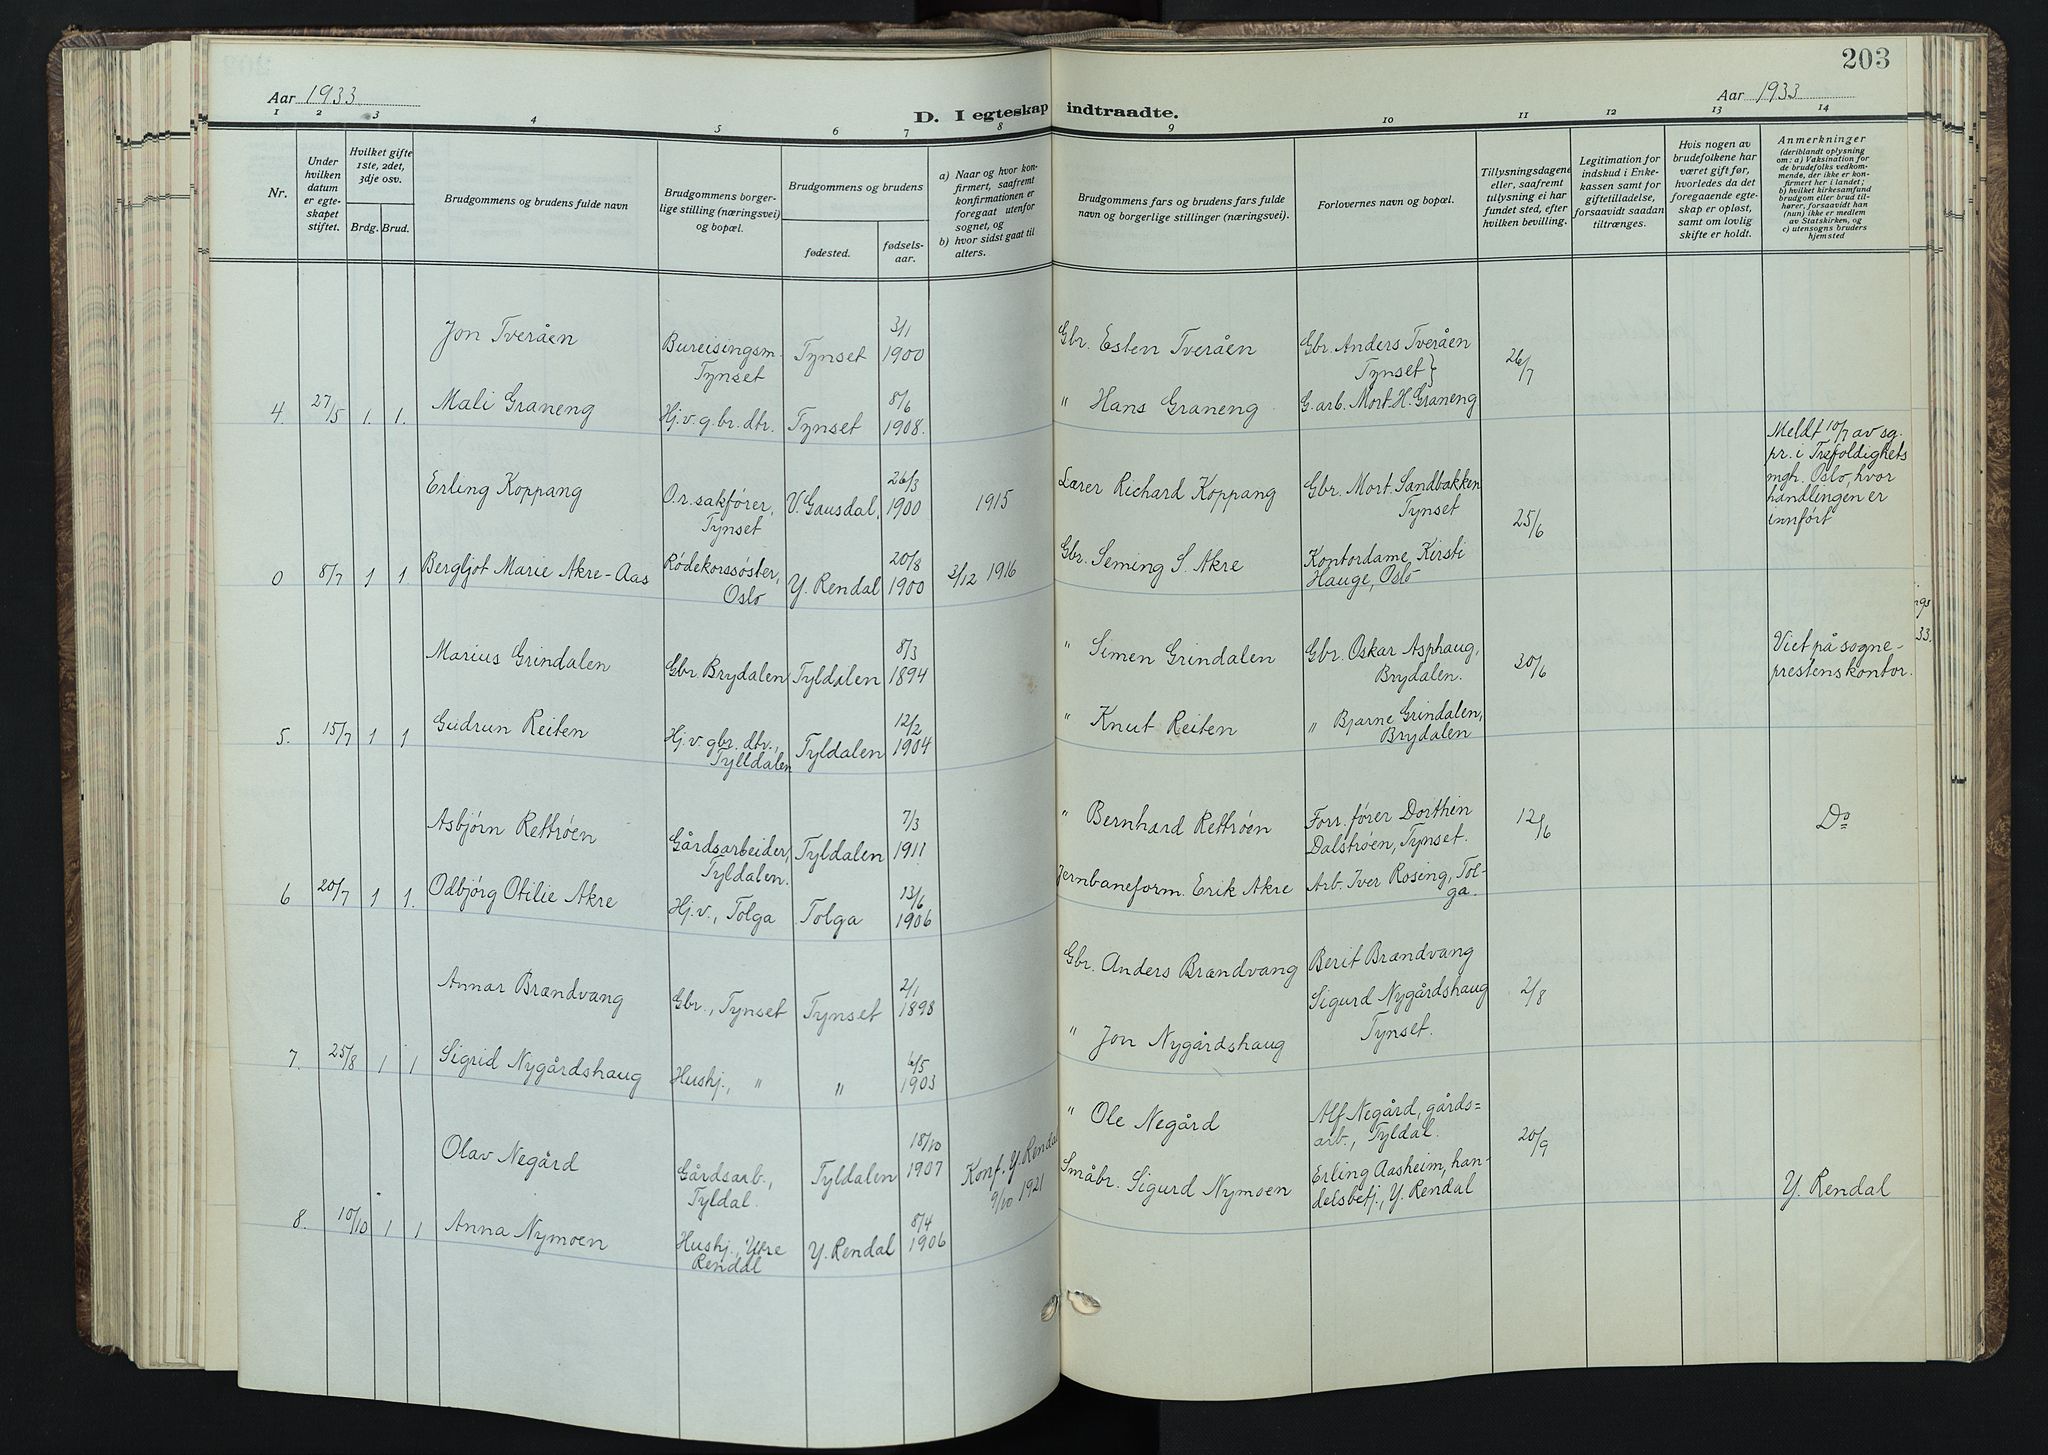 203
Aar 1933
D. I egteskap indtraadte.
Aar 1933
1 2 3 4 5 6 7 8 9 10 11 12 13 14
Nr.
Under
hvilken
datum
er egte-
skapet
stiftet.
Hvilket gifte
1ste, 2det,
3dje osv.
Brdg. Brud.
Brudgommens og brudens fulde navn
Brudgommens borger-
lige stilling (næringsvei)
og bopæl.
Brudgommens og brudens
fødested.
fødsels-
aar.
a) Naar og hvor kon-
firmert, saafremt
konfirmationen er
foregaat utenfor
sognet, og
b) hvor sidst gaat til
alters.
Brudgommens fars og brudens fars fulde
navn og borgerlige stillinger (næringsvei).
Forlovernes navn og bopæl.
Tillysningsdagene
eller, saafremt
tillysning ei har
fundet sted, efter
hvilken bevilling.
Legitimation for
indskud i Enke-
kassen samt for
giftetilladelse,
forsaavidt saadan
tiltrænges.
Hvis nogen av
brudefolkene har
været gift før,
hvorledes da det
foregaaende egte-
skap er opløst,
samt om lovlig
skifte er holdt.
Anmerkninger
(deriblandt oplysning
om: a) Vaksination for
de brudefolks vedkom-
mende, der ikke er kon-
firmert her i landet;
b) hvilket kirkesamfund
brudgom eller brud til-
hører, forsaavidt han
(hun) ikke er medlem
av Statskirken, og
c) utensogns bruders
hjemsted
Jon Tveråen Bureisingsm. Tynset Tynset 3/1 1900 Gbr. Esten Tveråen Gbr. Anders Tveråen Tynset} 26/7
4. 27/5 1. 1. Mali Graneng Hj.v. g.br.dtr. Tynset 8/6 1908. " Hans Graneng G.arb. Mort. H. Graneng
Erling Koppang O.r.sakfører, Tynset V. Gausdal. 26/3 1900 1915 Lærer Richard Koppang Gbr. Mort. Sandbakken Tynset 25/6
Meldt 10/7 av sg.
pr. i Trefoldighets
mgh. Oslo, hvor
handlingen er
innført
0 8/7 1 1. Bergljot Marie Akre-Aas Rødekorssøster, Oslo Y. Rendal 20/8 1900 3/12 1916 Gbr. Seming S. Akre Kontordame Kirsti Hauge, Oslo
Marius Grindalen Gbr Brydalen Tyldalen 8/3 1894 " Simen Grindalen Gbr. Oskar Asphaug, Brydalen. 30/6 Viet på sogne-
prestens kontor.
33.
5. 15/7 1 1 Gudrun Reiten Hj.v. gbr. dtr., Tylldalen Tyldalen 12/2 1904 " Knut Reiten " Bjarne Grindalen, Brydalen
Asbjørn Rettrøen Gårdsarbeider, Tyldalen. Tyldalen 7/3 1911 " Bernhard Rettrøen Forr.fører Dorthin Dalstrøen, Tynset. 12/6 Do
6 20/7 1 1. Odbjørg Otilie Akre Hj.v., Tolga Tolga 13/6 1906 Jernbaneform. Erik Akre Arb. Iver Rosing, Tol-
ga.
Annar Brandvang Gbr., Tynset Tynset 2/1 1898 Gbr. Anders Brandvang Berit Brandvang
Sigurd Nygårdshaug Tynset. 2/8
7. 25/8 1 1 Sigrid Nygårdshaug Hushj., " " 6/5 1903 " Jon Nygårdshaug
Olav Negård Gårdsarb., Tyldal. Tyldalen 18/10 1907 Konf. Y. Rendal 9/10 1921 " Ole Negård Alf Negård, gårds=
arb., Tyldal. 20/9
8. 10/10 1 1 Anna Nymoen Hushj., Ytre Rendal Y. Rendal 8/4 1906 Småbr. Sigurd Nymoen Erling Aasheim, han-
delsbetj., Y. Rendal Y. Rendal